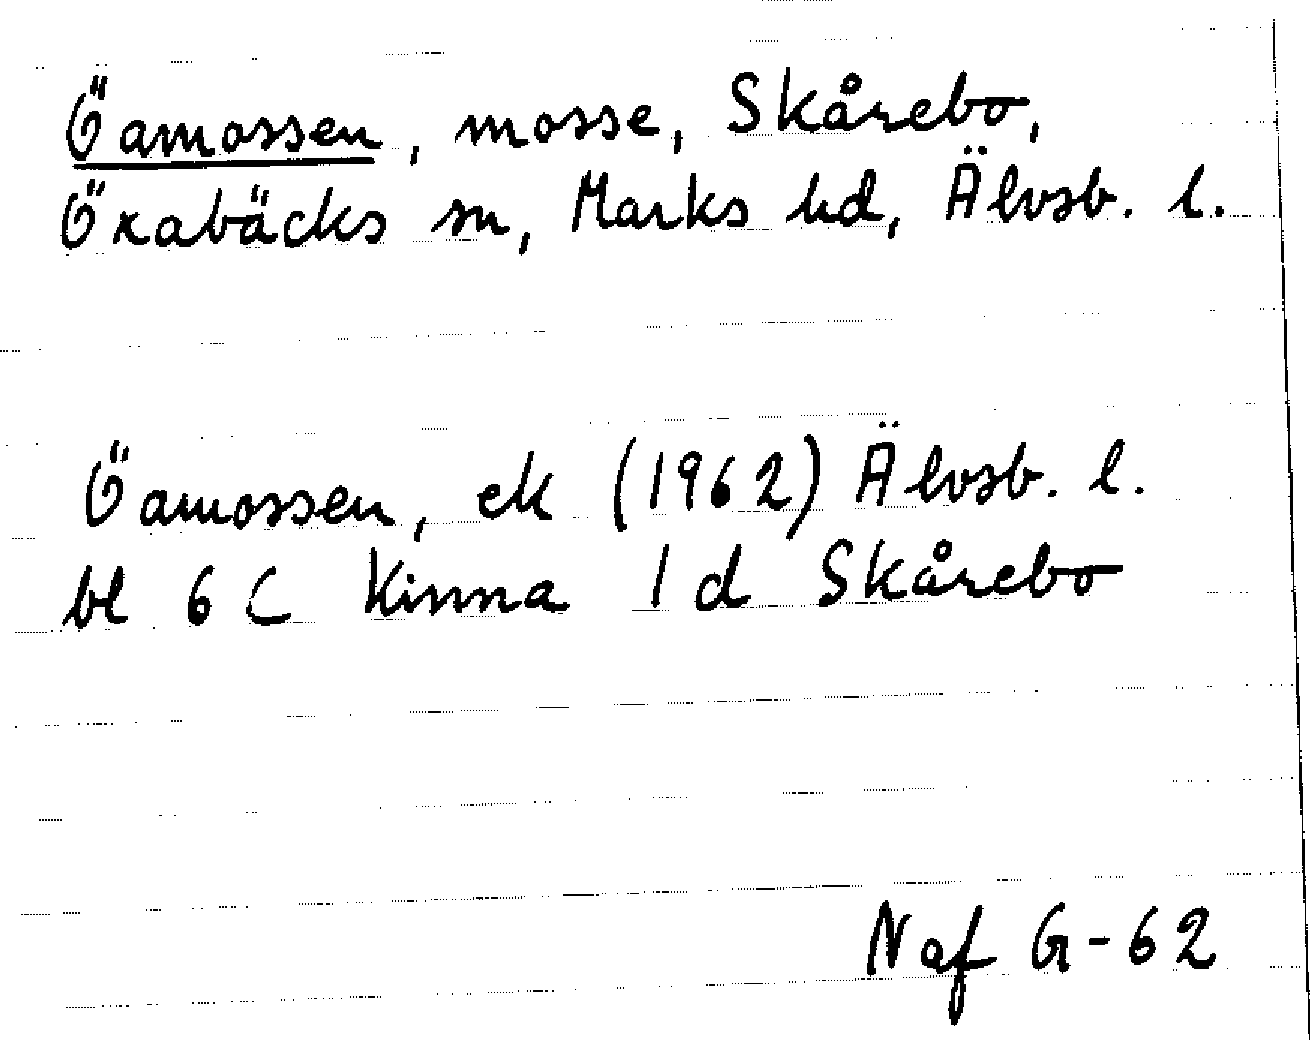 Öamossen, mosse, Skårebo,
Öxabäcks sn, Marks hd, Älvsb. l.
Öamossen, ek (1962) Älvsb. l.
bl 6 C Kinna 1 d Skårebo
Naf G-62